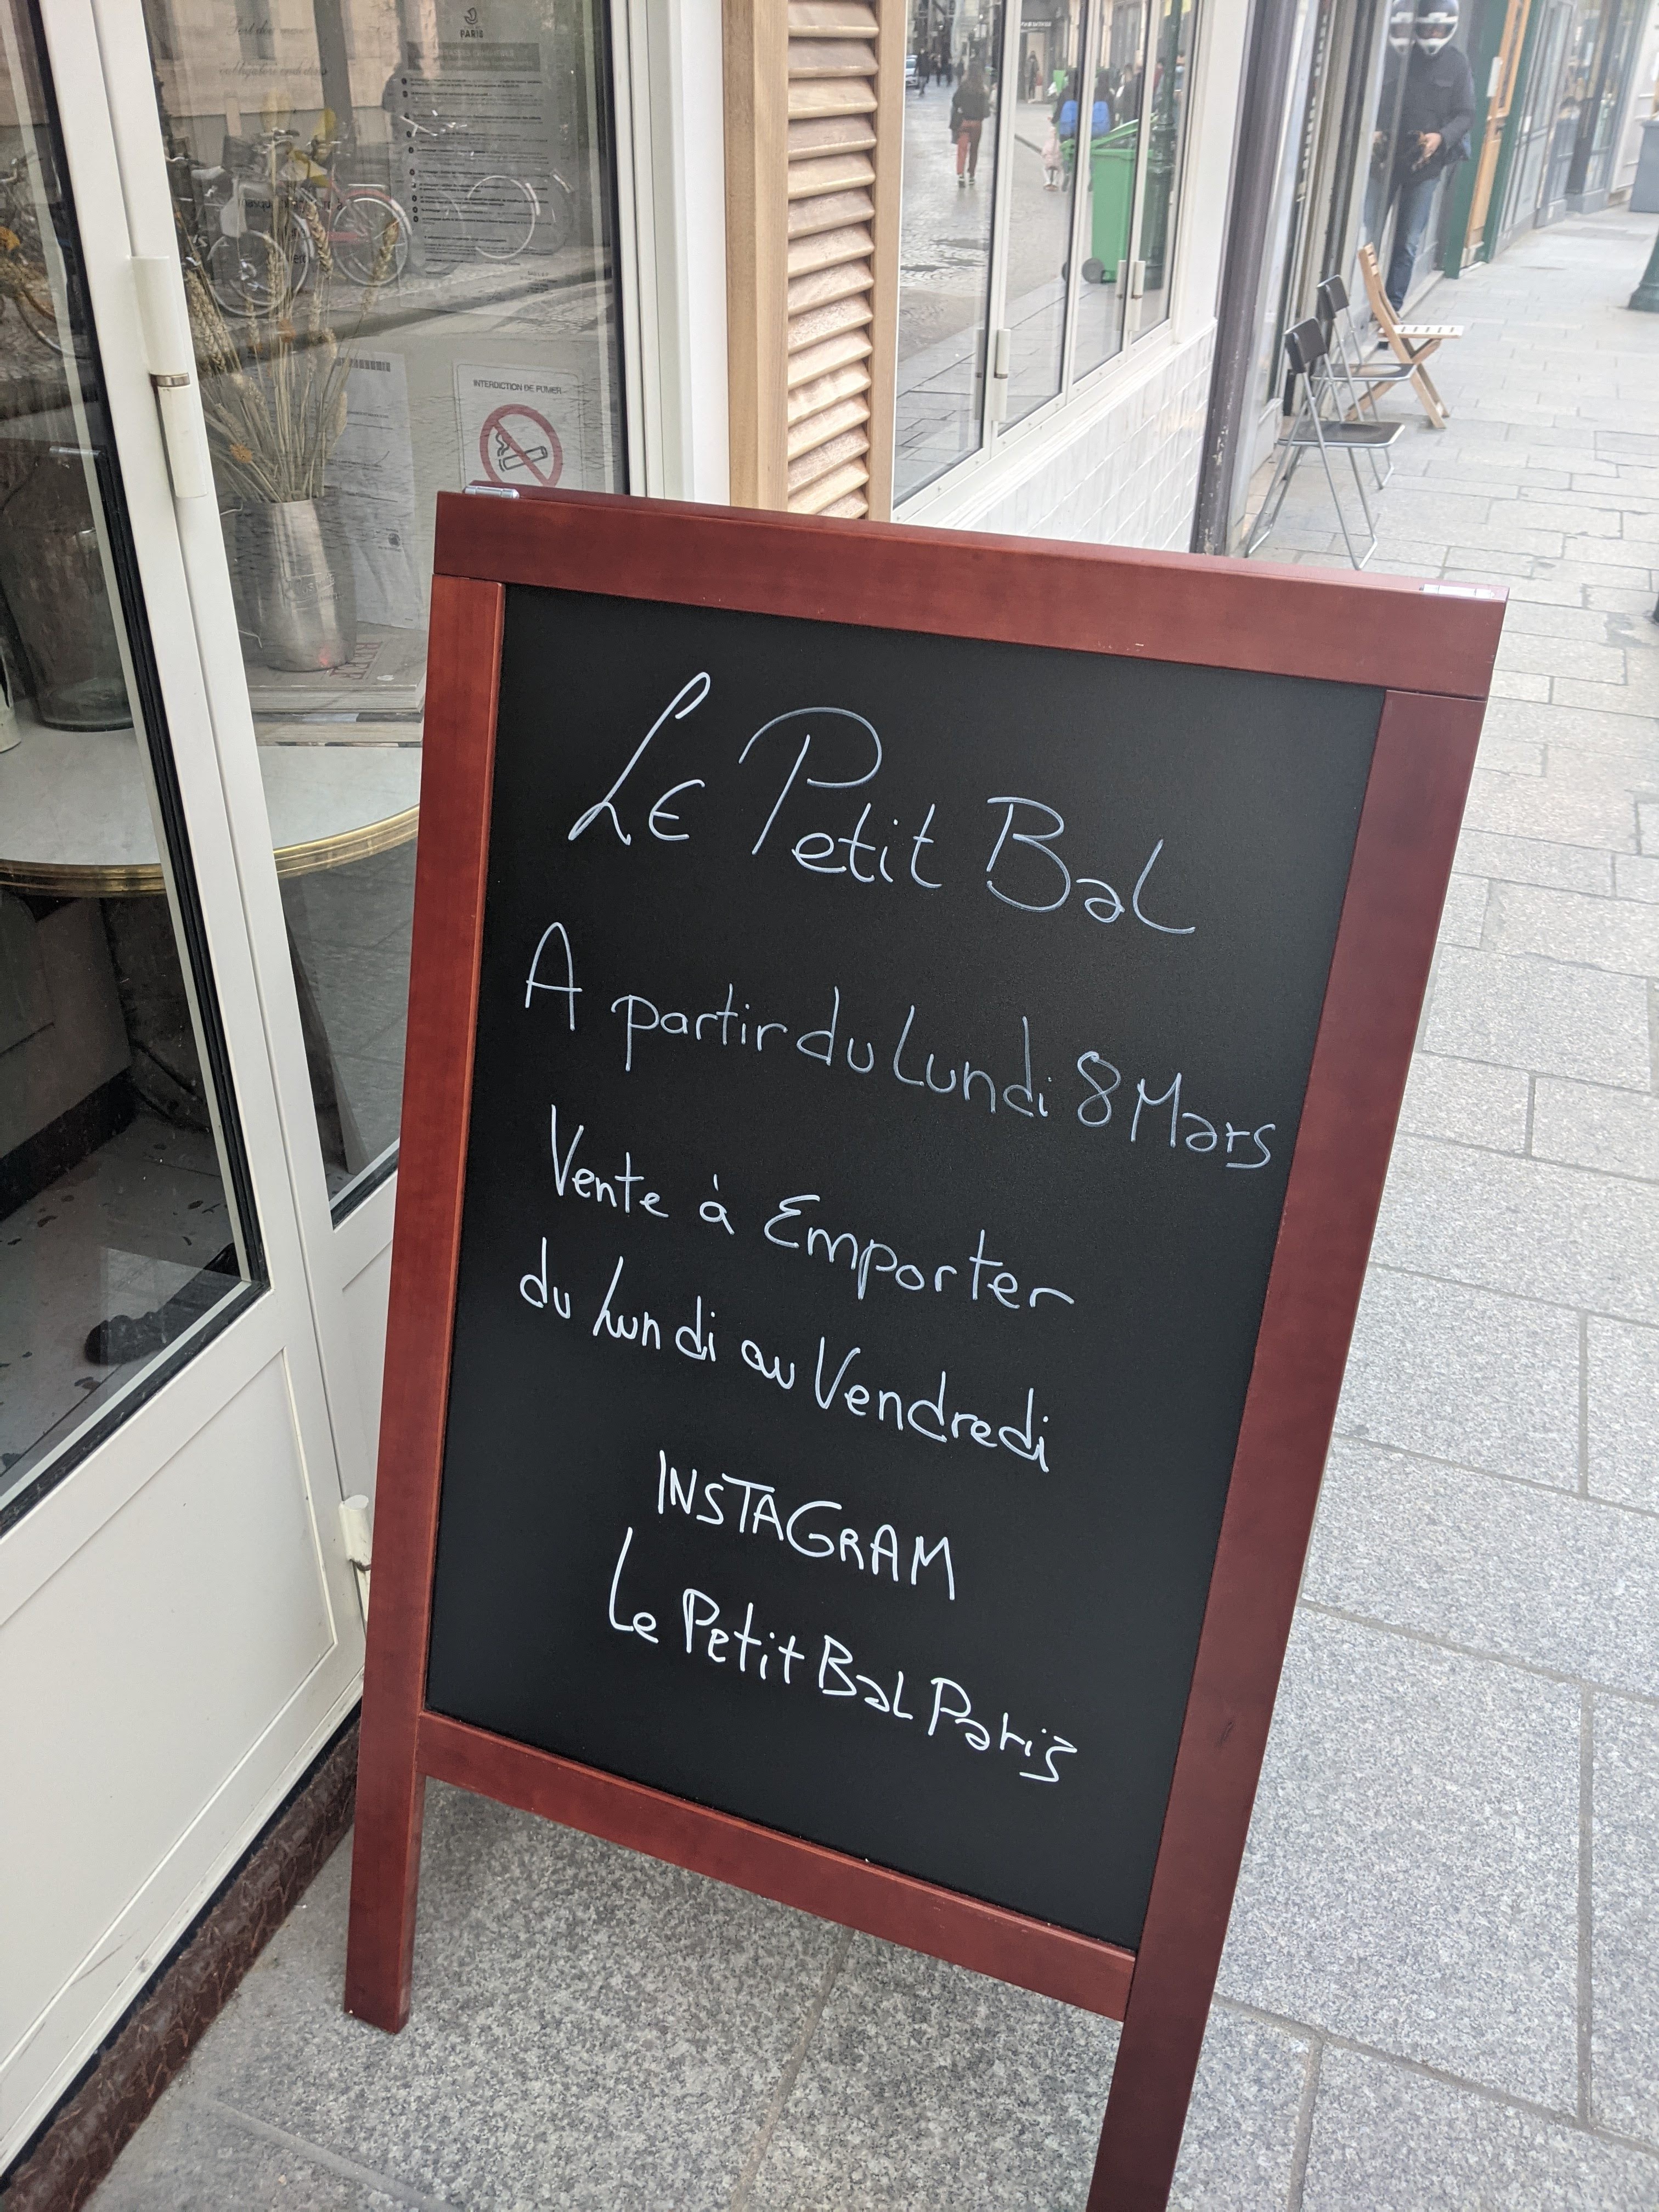 PARIS
INTERDICTION DE FUMER
Le Petit Bal
A partir du Lundi 8 Mars
Vente à Emporter
du Lundi au Vendredi
INSTAGRAM
Le Petit Bal Paris